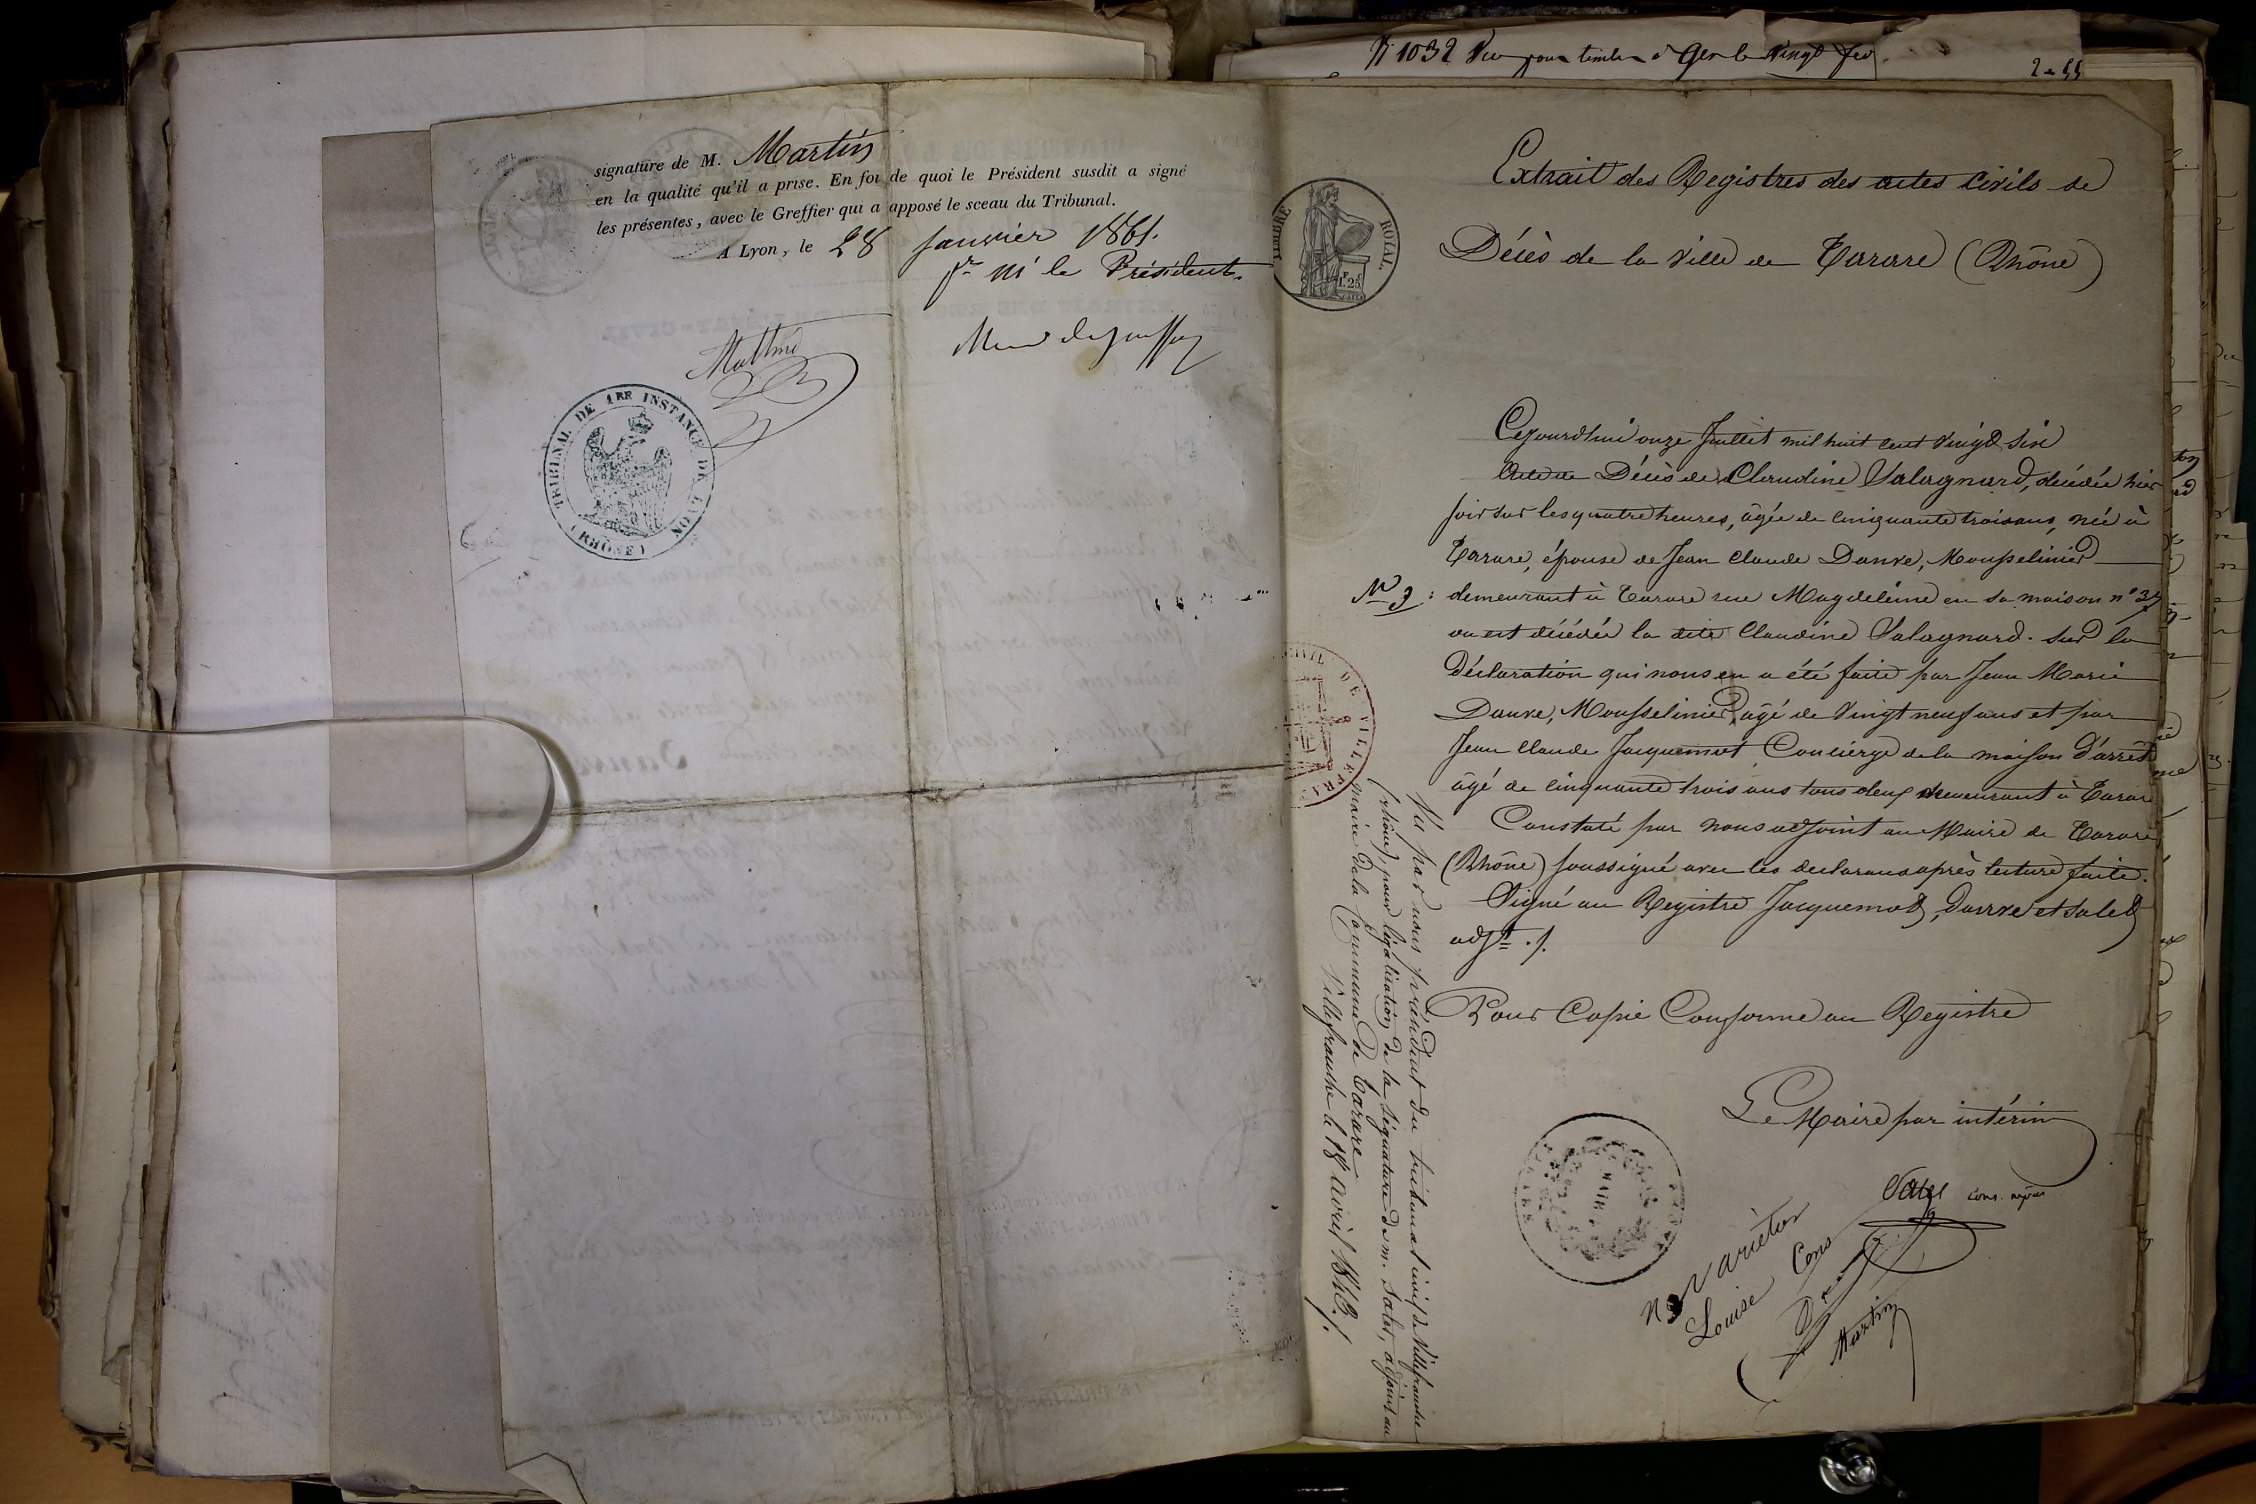 N° 1032 Vu pour timbre à Gex le Vingt fév
signature de M. Martin
en la qualité qu'il a prise. En foi de quoi le Président susdit a signé
les présentes, avec le Greffier qui a apposé le sceau du Tribunal.
A Lyon, le 28 Janvier 1861.
pr M le Président.
TRIBUNAL DE 1RE INSTANCE DE LYON
(RHÔNE)
TIMBRE ROYAL
1F 25
Extrait des Registres des actes Civils de
Décès de la Ville de Tarare (Rhône)
Cejourdhui onze Juillet mil huit cent Vingt Six
Acte de Décès de Claudine Salagnard, décédée hier
soir sur les quatre heures, âgée de cinquante trois ans, née à
Tarare, épouse de Jean Claude Danve, Mousselinier
N° 3 : demeurant à Tarare rue Magdeleine en sa maison n° 37
ou est décédée la dite Claudine Salagnard. Sur la
Déclaration qui nous en a été faite par Jean Marie
Danve, Mousselinier, âgé de Vingt neuf ans et par
Jean Claude Jacquemot Concierge de la maison d'arrêt
âgé de cinquante trois ans tous deux demeurant à Tarare
Constaté par nous adjoint au Maire de Tarare
(Rhône) soussigné avec les declarans après lecture faite.
Signé au Registre Jacquemot, Danve et Salet
adjt. /.
Pour Copie Conforme au Registre
Le Maire par intérim
Salet cons. mpal
MAIRIE
ne varietur
Louise Cons
Martin
CIVIL DE VILLEFRA
Vu par nous président du tribunal civil de Villefranche
(rhône), pour légalisation de la signature de m. Salet, adjoint au
maire de la Commune de Tarare
Villefranche le 18 avril 1848./.